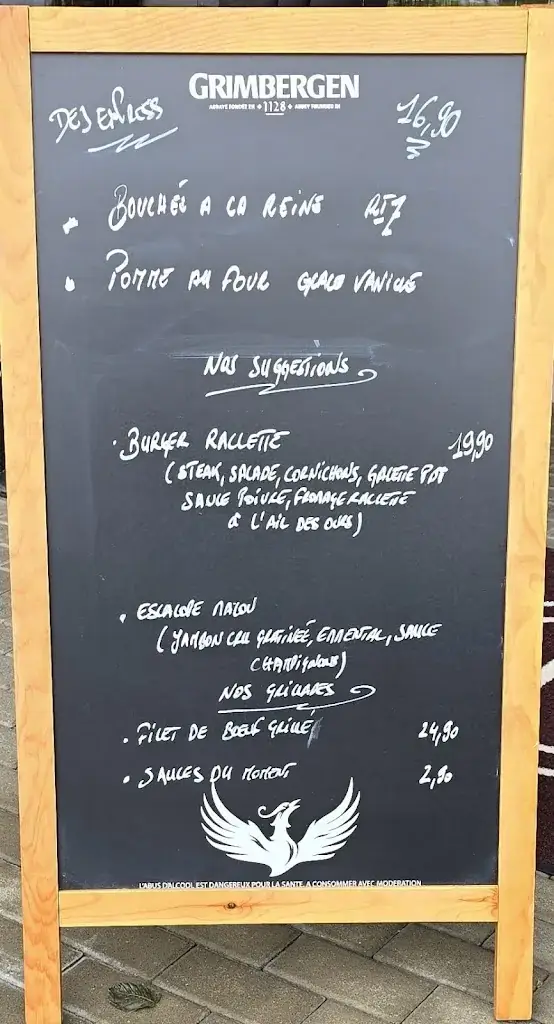 GRIMBERGEN
ABBAYE FONDÉE EN 1128 ABBEY FOUNDED IN
DEJ EXPRESS 16,90
BOUCHÉE A LA REINE
POMME AU FOUR GLACE VANILLE
NOS SUGGESTIONS
BURGER RACLETTE 19,90
(STEAK, SALADE, CORNICHONS, GALETTE PDT
SAUCE POIVRE, FROMAGE RACLETTE
à L'AIL DES OURS)
ESCALOPE MAZOU
(JAMBON CRU GRATINÉE, EMMENTAL, SAUCE
CHAMPIGNONS)
NOS GRILLADES
FILET DE BOEUF GRILLÉ 24,90
SAUCES DU MOMENT 2,90
L'ABUS D'ALCOOL EST DANGEREUX POUR LA SANTÉ. A CONSOMMER AVEC MODERATION